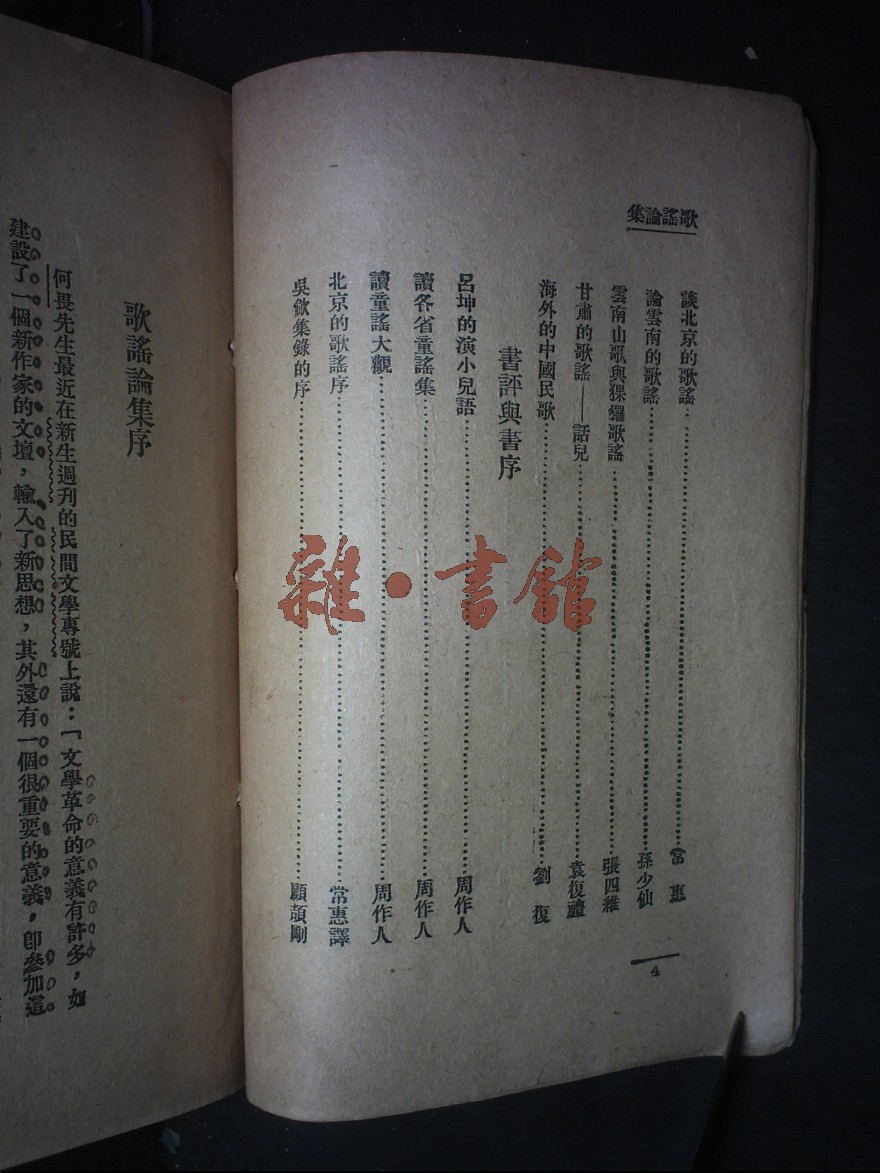 歌謠論集
談北京的歌謠……常惠
論雲南的歌謠……孫少仙
雲南山歌與猓玀歌謠……張四維
甘肅的歌謠——話兒……袁復禮
海外的中國民歌……劉復
書評與書序
呂坤的演小兒語……周作人
讀各省童謠集……周作人
讀童謠大觀……周作人
北京的歌謠序……常惠譯
吳歈集錄的序……顧頡剛
4
歌謠論集序
何畏先生最近在新生週刊的民間文學專號上說：「文學革命的意義有許多，如
建設了一個新作家的文壇，輸入了新思想，其外還有一個很重要的意義，卽參加這
雜·書館